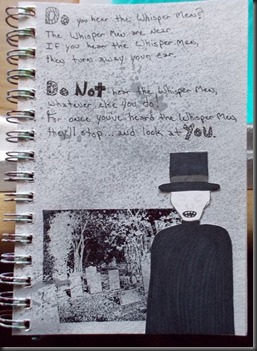 Do you hear the Whisper Men?
The Whisper Men are near
If you hear the Whisper Men,
then turn away your ear.
Do Not hear the Whisper Men,
whatever else you do!
For once you've heard the Whisper Men,
They'll stop...and look at You.